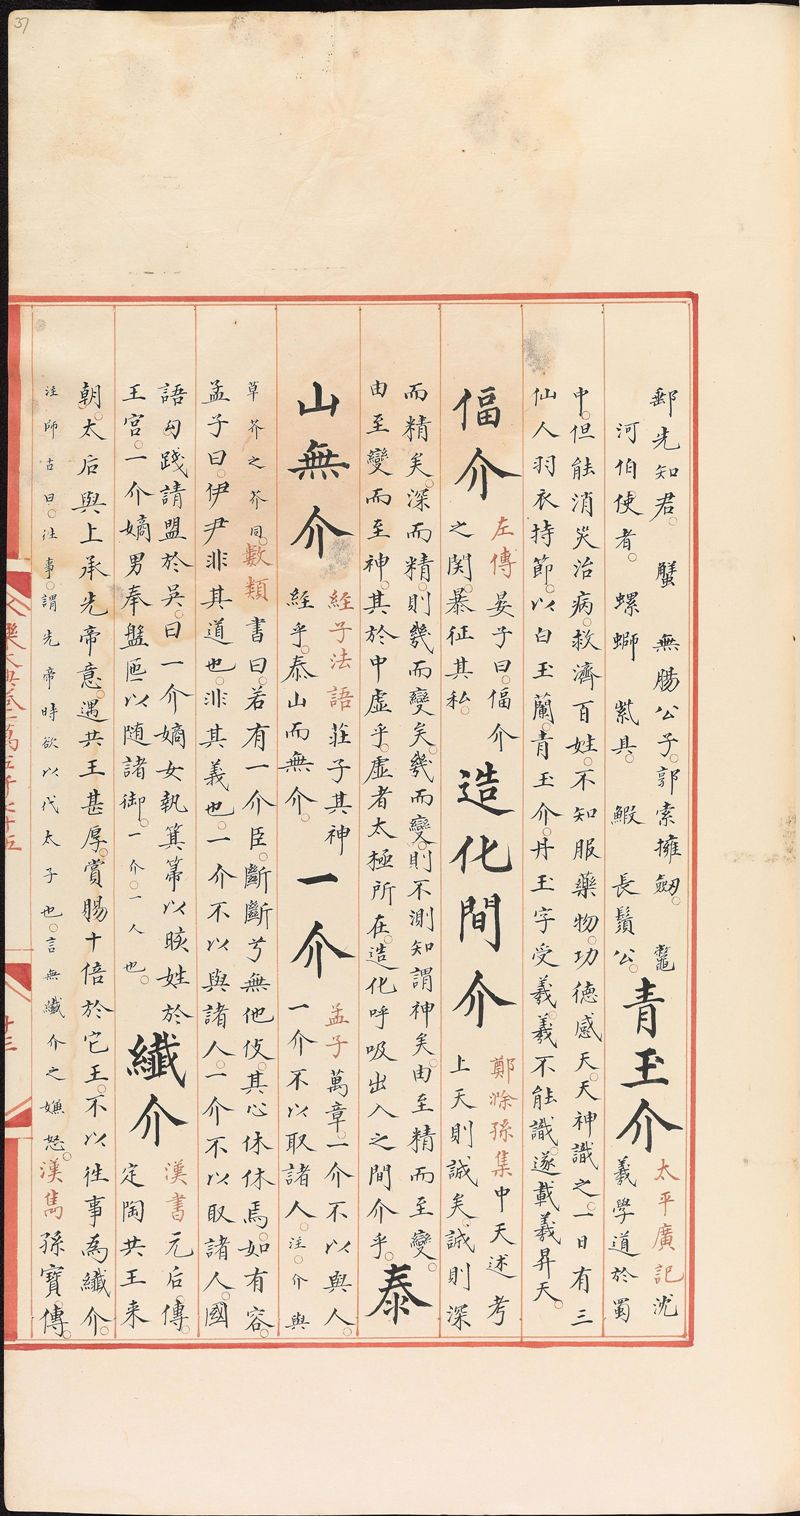 郵先知君。 蟹 無腸公子。郭索擁劒。 鼈
河伯使者。 螺螄 紫具。 鰕 長鬚公。
青玉介
太平廣記沈
羲學道於蜀
中。但能消災治病。救濟百姓。不知服藥物。功德感天。天神識之。一日有三
仙人羽衣持節。以白玉蘭。青玉介。丹玉字受羲。羲不能識。遂載羲昇天。
偪介
左傳晏子曰。偪介
之関。暴征其私。
造化間介
鄭滁孫集中天述考
上天則誠矣。誠則深
而精矣。深而精。則幾而變矣。幾而變。則不測知謂神矣。由至精而至變。
由至變而至神。其於中虛乎。虛者太極所在。造化呼吸出入之間介乎。
泰
山無介
經子法語莊子其神
經乎。泰山而無介。
一介
孟子萬章。一介不以與人。
一介不以取諸人。注。介與
草芥之芥同。
數類書曰。若有一介臣。斷斷兮無他伎。其心休休焉。如有容。
孟子曰。伊尹非其道也。非其義也。一介不以與諸人。一介不以取諸人。國
語勾踐請盟於吳。曰一介嫡女執箕箒以晐姓於
王宮。一介嫡男奉盤匜以随諸御。一介。一人也。
纎介
漢書元后傳。
定陶共王来
朝。太后與上承先帝意。遇共王甚厚。賞賜十倍於它王。不以徃事為纎介。
注師古曰。徃事。謂先帝時欲以代太子也。言無纎介之嫌怒。漢雋孫寶傳。
樂大典卷一萬五千七十五
廿三
37